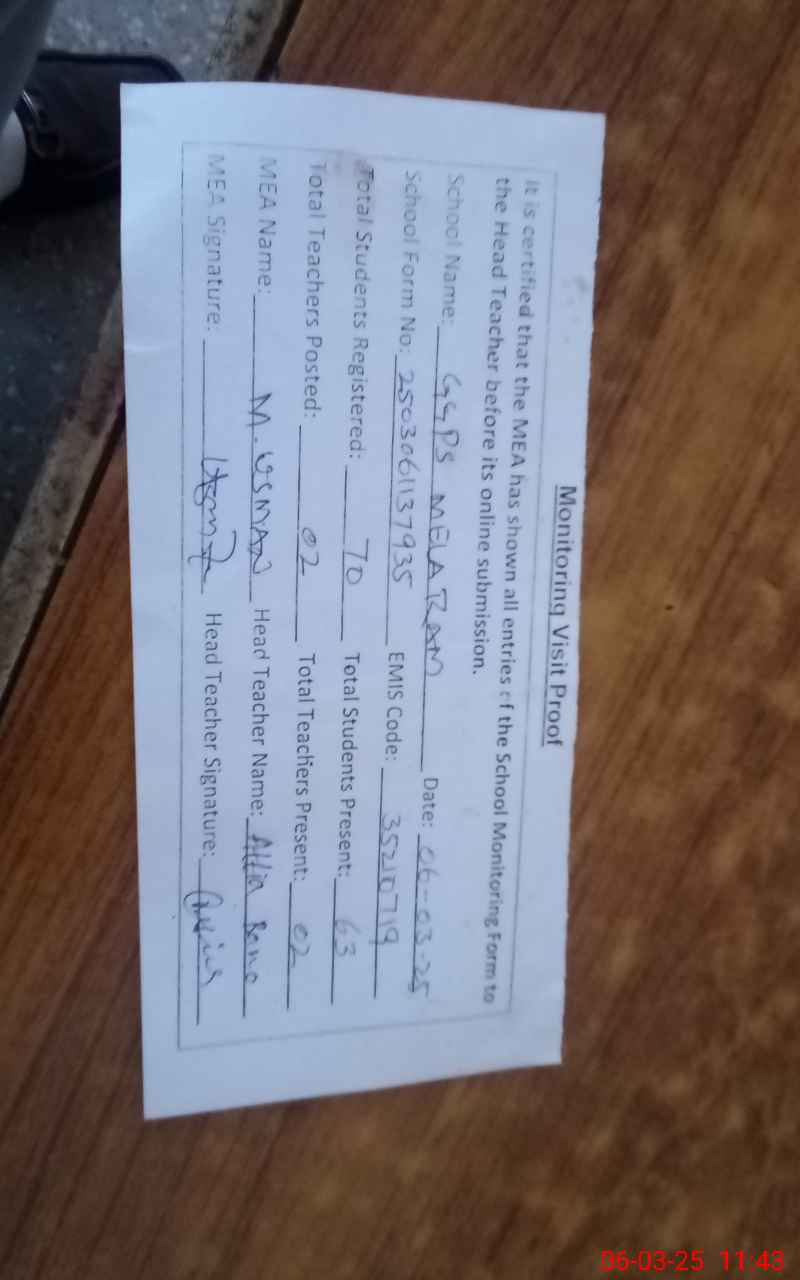 Monitoring Visit Proof
It is certified that the MEA has shown all entries of the School Monitoring Form to
the Head Teacher before its online submission.
School Name: GGPS MELA RAM Date: 06-03-25
School Form No: 2503061137935 EMIS Code: 35210719
Total Students Registered: 70 Total Students Present: 63
Total Teachers Posted: 02 Total Teachers Present: 02
MEA Name: M. USMAN Head Teacher Name: Allia Bano
MEA Signature: Head Teacher Signature:
06-03-25 11:43